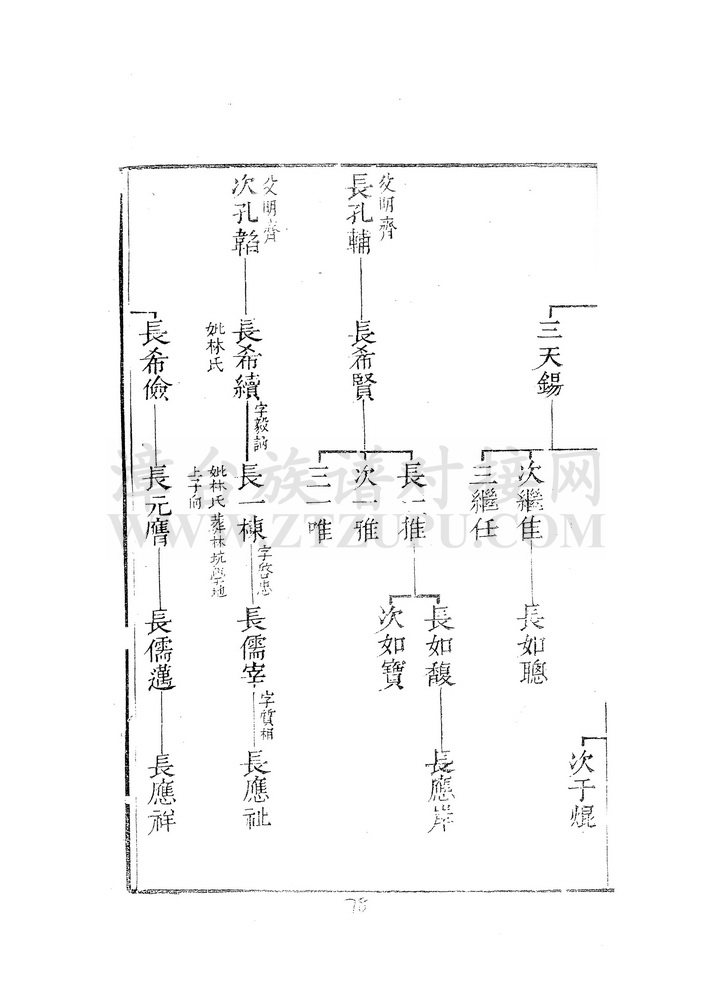 三天錫
次繼隹
三繼任
長如聰
次于焜
父明齊
長孔輔
長希賢
長一推
次一雅
三一唯
長如馥
次如寶
長應岸
父明齊
次孔韜
長希續
妣林氏
字毅訥
長一棟
妣林氏葬林坑學地
上子向
長儒宰
字質相
長應祉
長希儉
長元膺
長儒邁
長應祥
漳台族谱对接网
WWW.ZTZUPU.COM
78